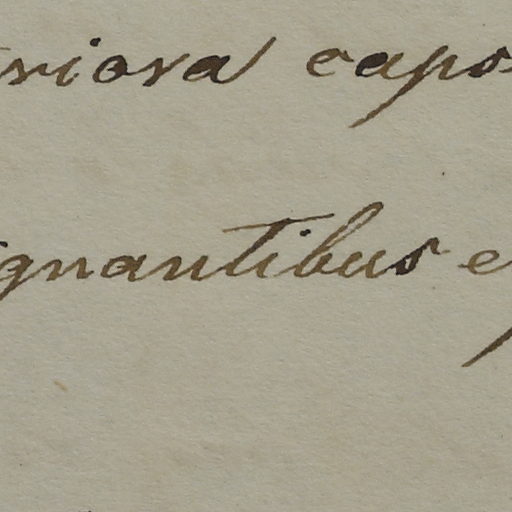 riora caps
gnantibus e